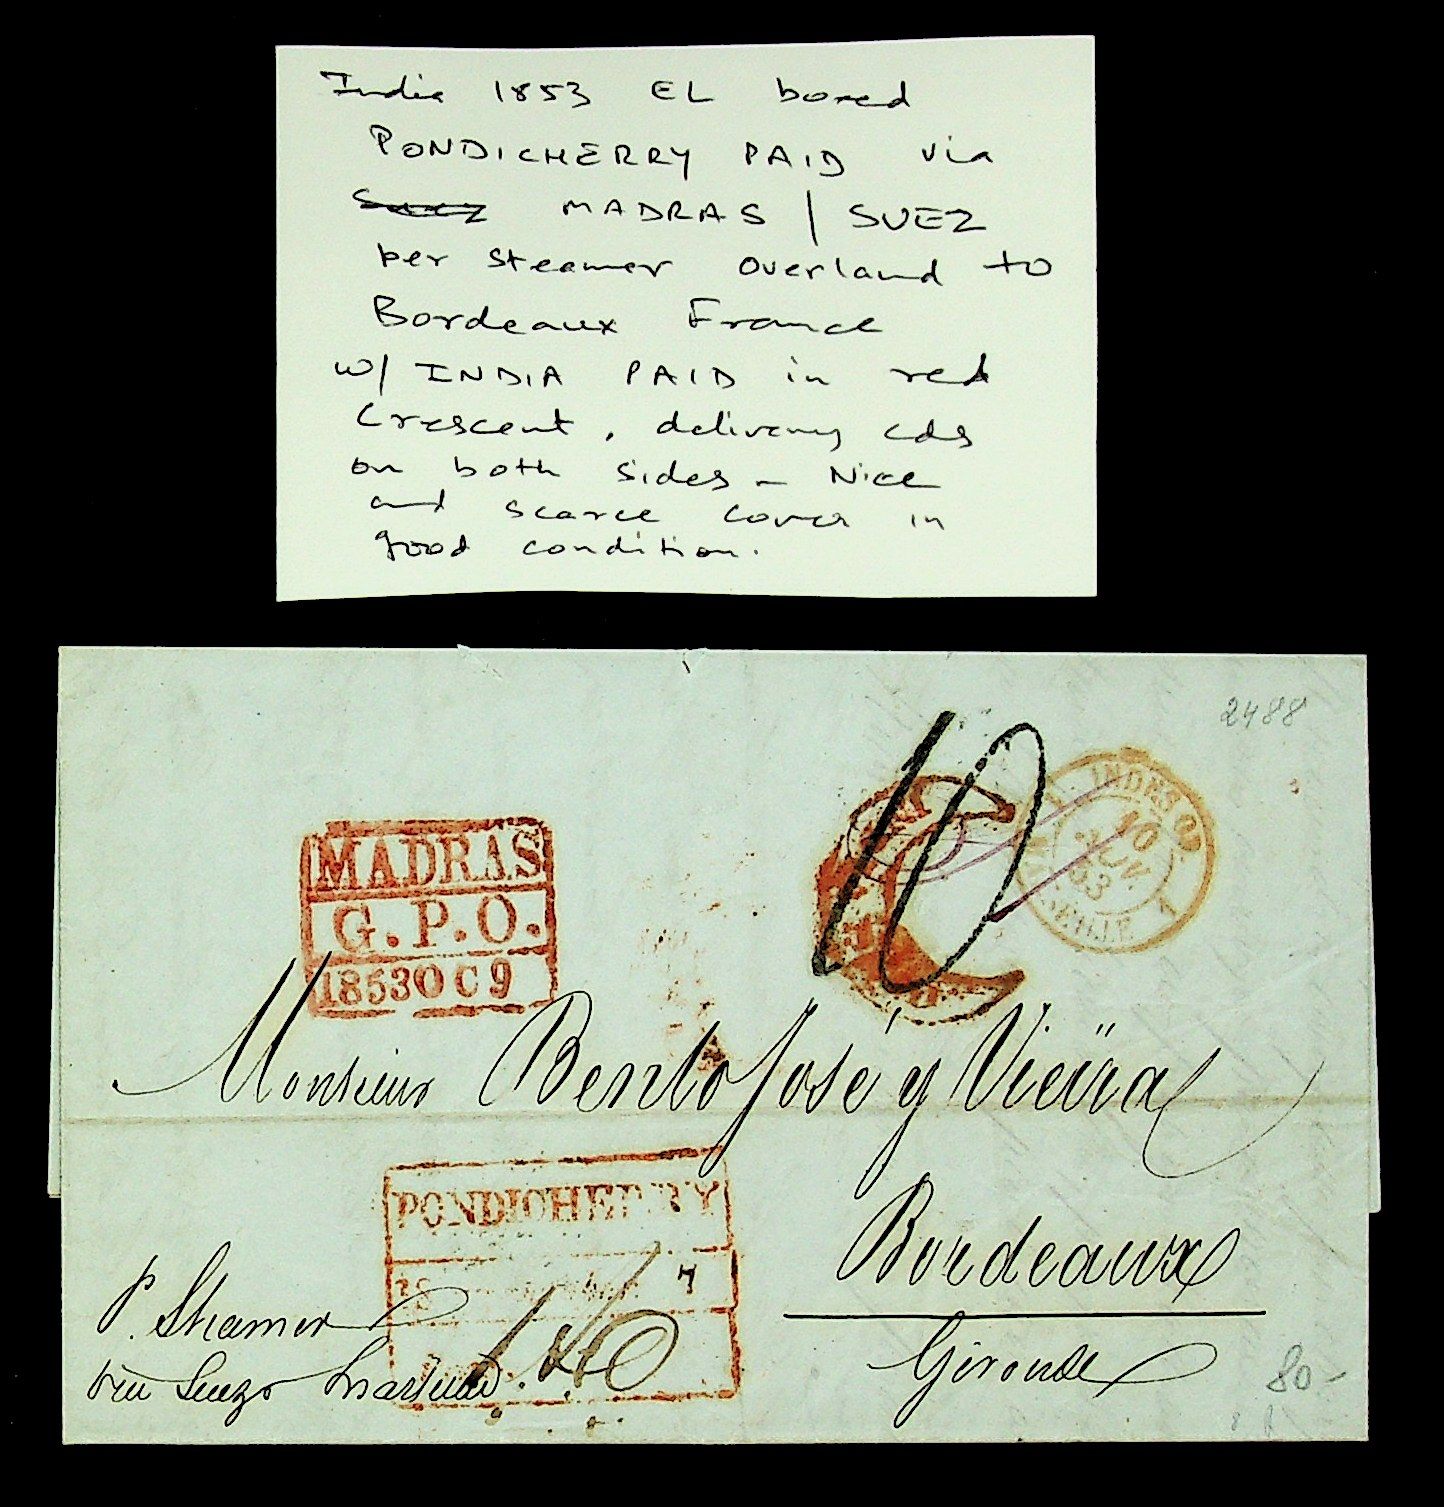 India 1853 EL boxed
PONDICHERRY PAID via
Suez MADRAS / SUEZ
per steamer overland to
Bordeaux France
w/ INDIA PAID in red
Crescent, delivery cds
on both sides - Nice
and scarce cover in
good condition.
2488
10
INDES OR.
10
NOV.
53
MARSEILLE
MADRAS
G.P.O.
1853 OC 9
Monsieur Bento José y Vieïra
PONDICHERRY
7
Bordeaux
P. Steamer
via Suez
Gironde
80-